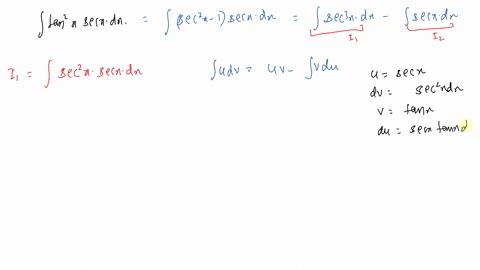 ∫tan²x secx·dx. = ∫(sec²x-1) secx·dx = ∫sec³x·dx - ∫secx·dx
I₁ I₂
I₁ = ∫sec²x·secx·dx ∫udv = uv - ∫vdu
u = secx
dv = sec²xdx
v = tanx
du = secx tanx d